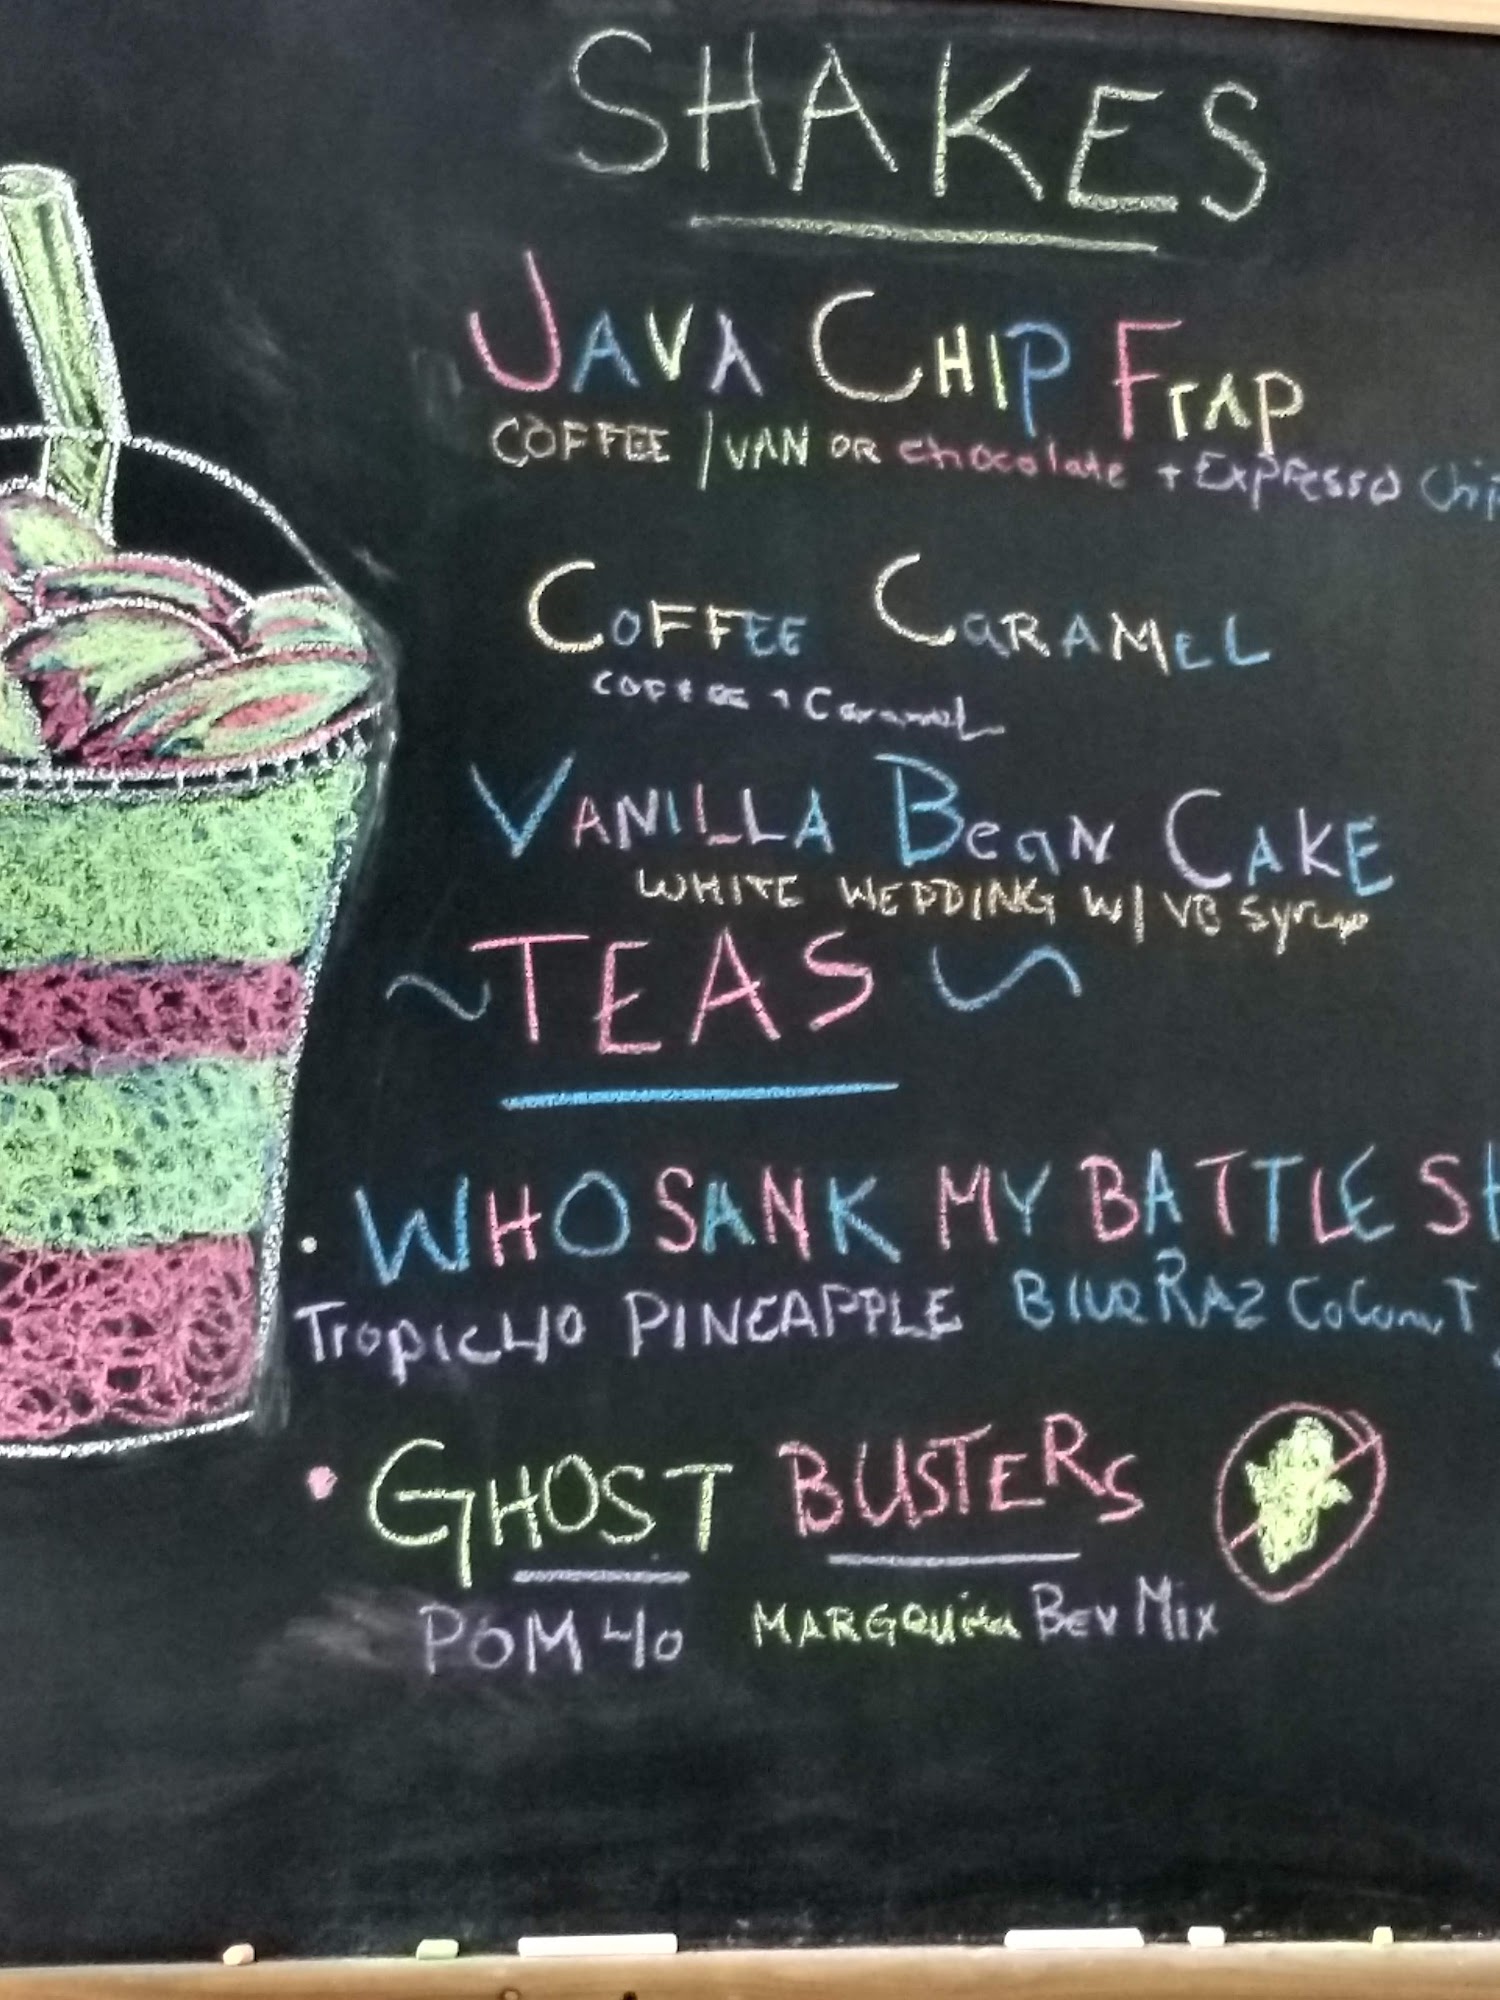 SHAKES
JAVA CHIP FrAP
COFFEE / VAN OR chocolate + Expresso Chip
COFFEE CARAMEL
COFFEE + Caramel
VANILLA BeaN CAKE
WHITE WEDDING W/ VB Syrup
~ TEAS ~
• WHO SANK MY BATTLE SH
Tropic 40 PINEAPPLE Blue RAZ CoConuT
• GHOST BUSTERS
POM 40 MARGQUita BEV MIX